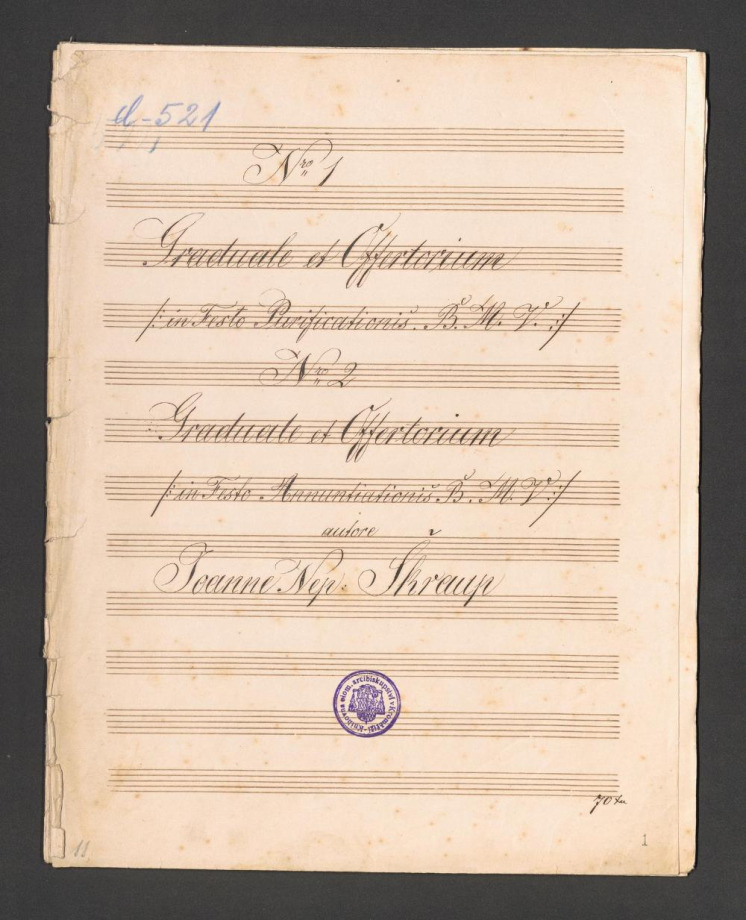 d-521
Nro 1
Graduale et Offertorium
/: in Festo Purificationis B. M. V. :/
Nro 2
Graduale et Offertorium
/: in Festo Annuntiationis B. M. V. :/
autore
Joanne Nep. Škraup
Knihovna olom. arcibiskupství v Kroměříži
70 xr
1
11